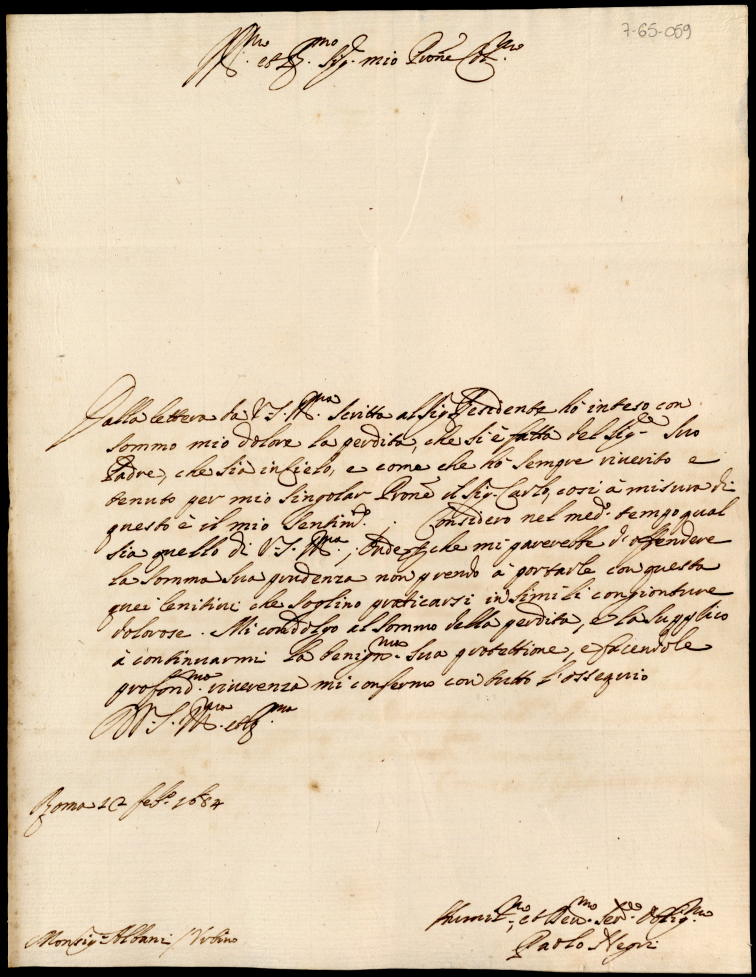 7-65-059
Ill.mo et R.mo Sig.r mio Prōne Col.mo
Dalla lettera da V.S. Ill.ma scritta al Sig.r Residente hò inteso con
sommo mio dolore la perdita, che si è fatta del Sig.r Suo
Padre, che sia in Cielo, e come che hò sempre riverito e
tenuto per mio singolar Prōne il Sig.r Carlo, così à misura di
questo è il mio sentim.to. Considero nel med.o tempo qual
sia quello di V.S. Ill.ma, onde che mi parerebbe d'offendere
la somma sua prudenza non prendo à portarle con questa
quei lenitivi che soglino praticarsi in simili congionture
dolorose. Mi condolgo al sommo della perdita, e la supplico
à continuarmi la benign.ma sua protettione, e facendole
profond.ma riverenza mi confermo con tutto l'ossequio
D V.S. Ill.ma et R.ma
Roma 12 feb.o 1684
Humil.mo, et Dev.mo Ser.re Oblig.mo
Monsig.r Albani / Urbino
Paolo Negri